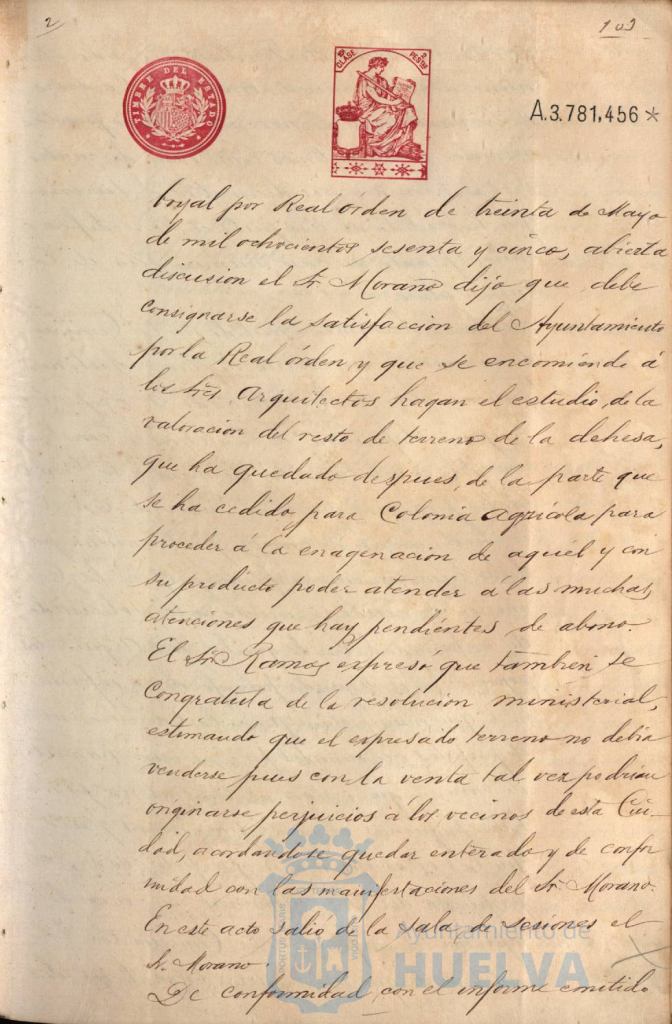 2
103
TIMBRE DEL ESTADO
CLASE
PESETAS
A.3.781,456*
boyal por Real órden de treinta de Mayo
de mil ochocientos sesenta y cinco, abierta
discusion el Sr. Morano dijo que debe
consignarse la satisfaccion del Ayuntamiento
por la Real órden y que se encomiende á
los Sres. Arquitectos hagan el estudio de la
valoracion del resto de terreno de la dehesa,
que ha quedado despues, de la parte que
se ha cedido para Colonia agrícola para
proceder á la enagenacion de aquel y con
su producto poder atender á las muchas
atenciones que hay pendientes de abono.
El Sr. Ramos expresó que tambien se
congratula de la resolucion ministerial,
estimando que el expresado terreno no debia
venderse pues con la venta tal vez podrian
originarse perjuicios á los vecinos de esta Ciu-
dad, acordandose quedar enterado y de confor
midad con las manifestaciones del Sr. Morano.
En este acto salió de la sala de sesiones el
Sr. Morano.
De conformidad con el informe emitido
Ayuntamiento de
HUELVA